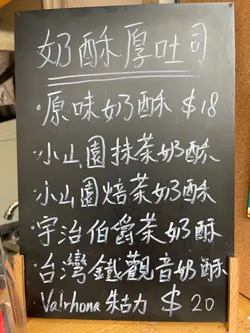 奶酥厚吐司
·原味奶酥 $18
·小山園抹茶奶酥
·小山園焙茶奶酥
·宇治伯爵茶奶酥
·台灣鐵觀音奶酥
Valrhona 朱古力 $20